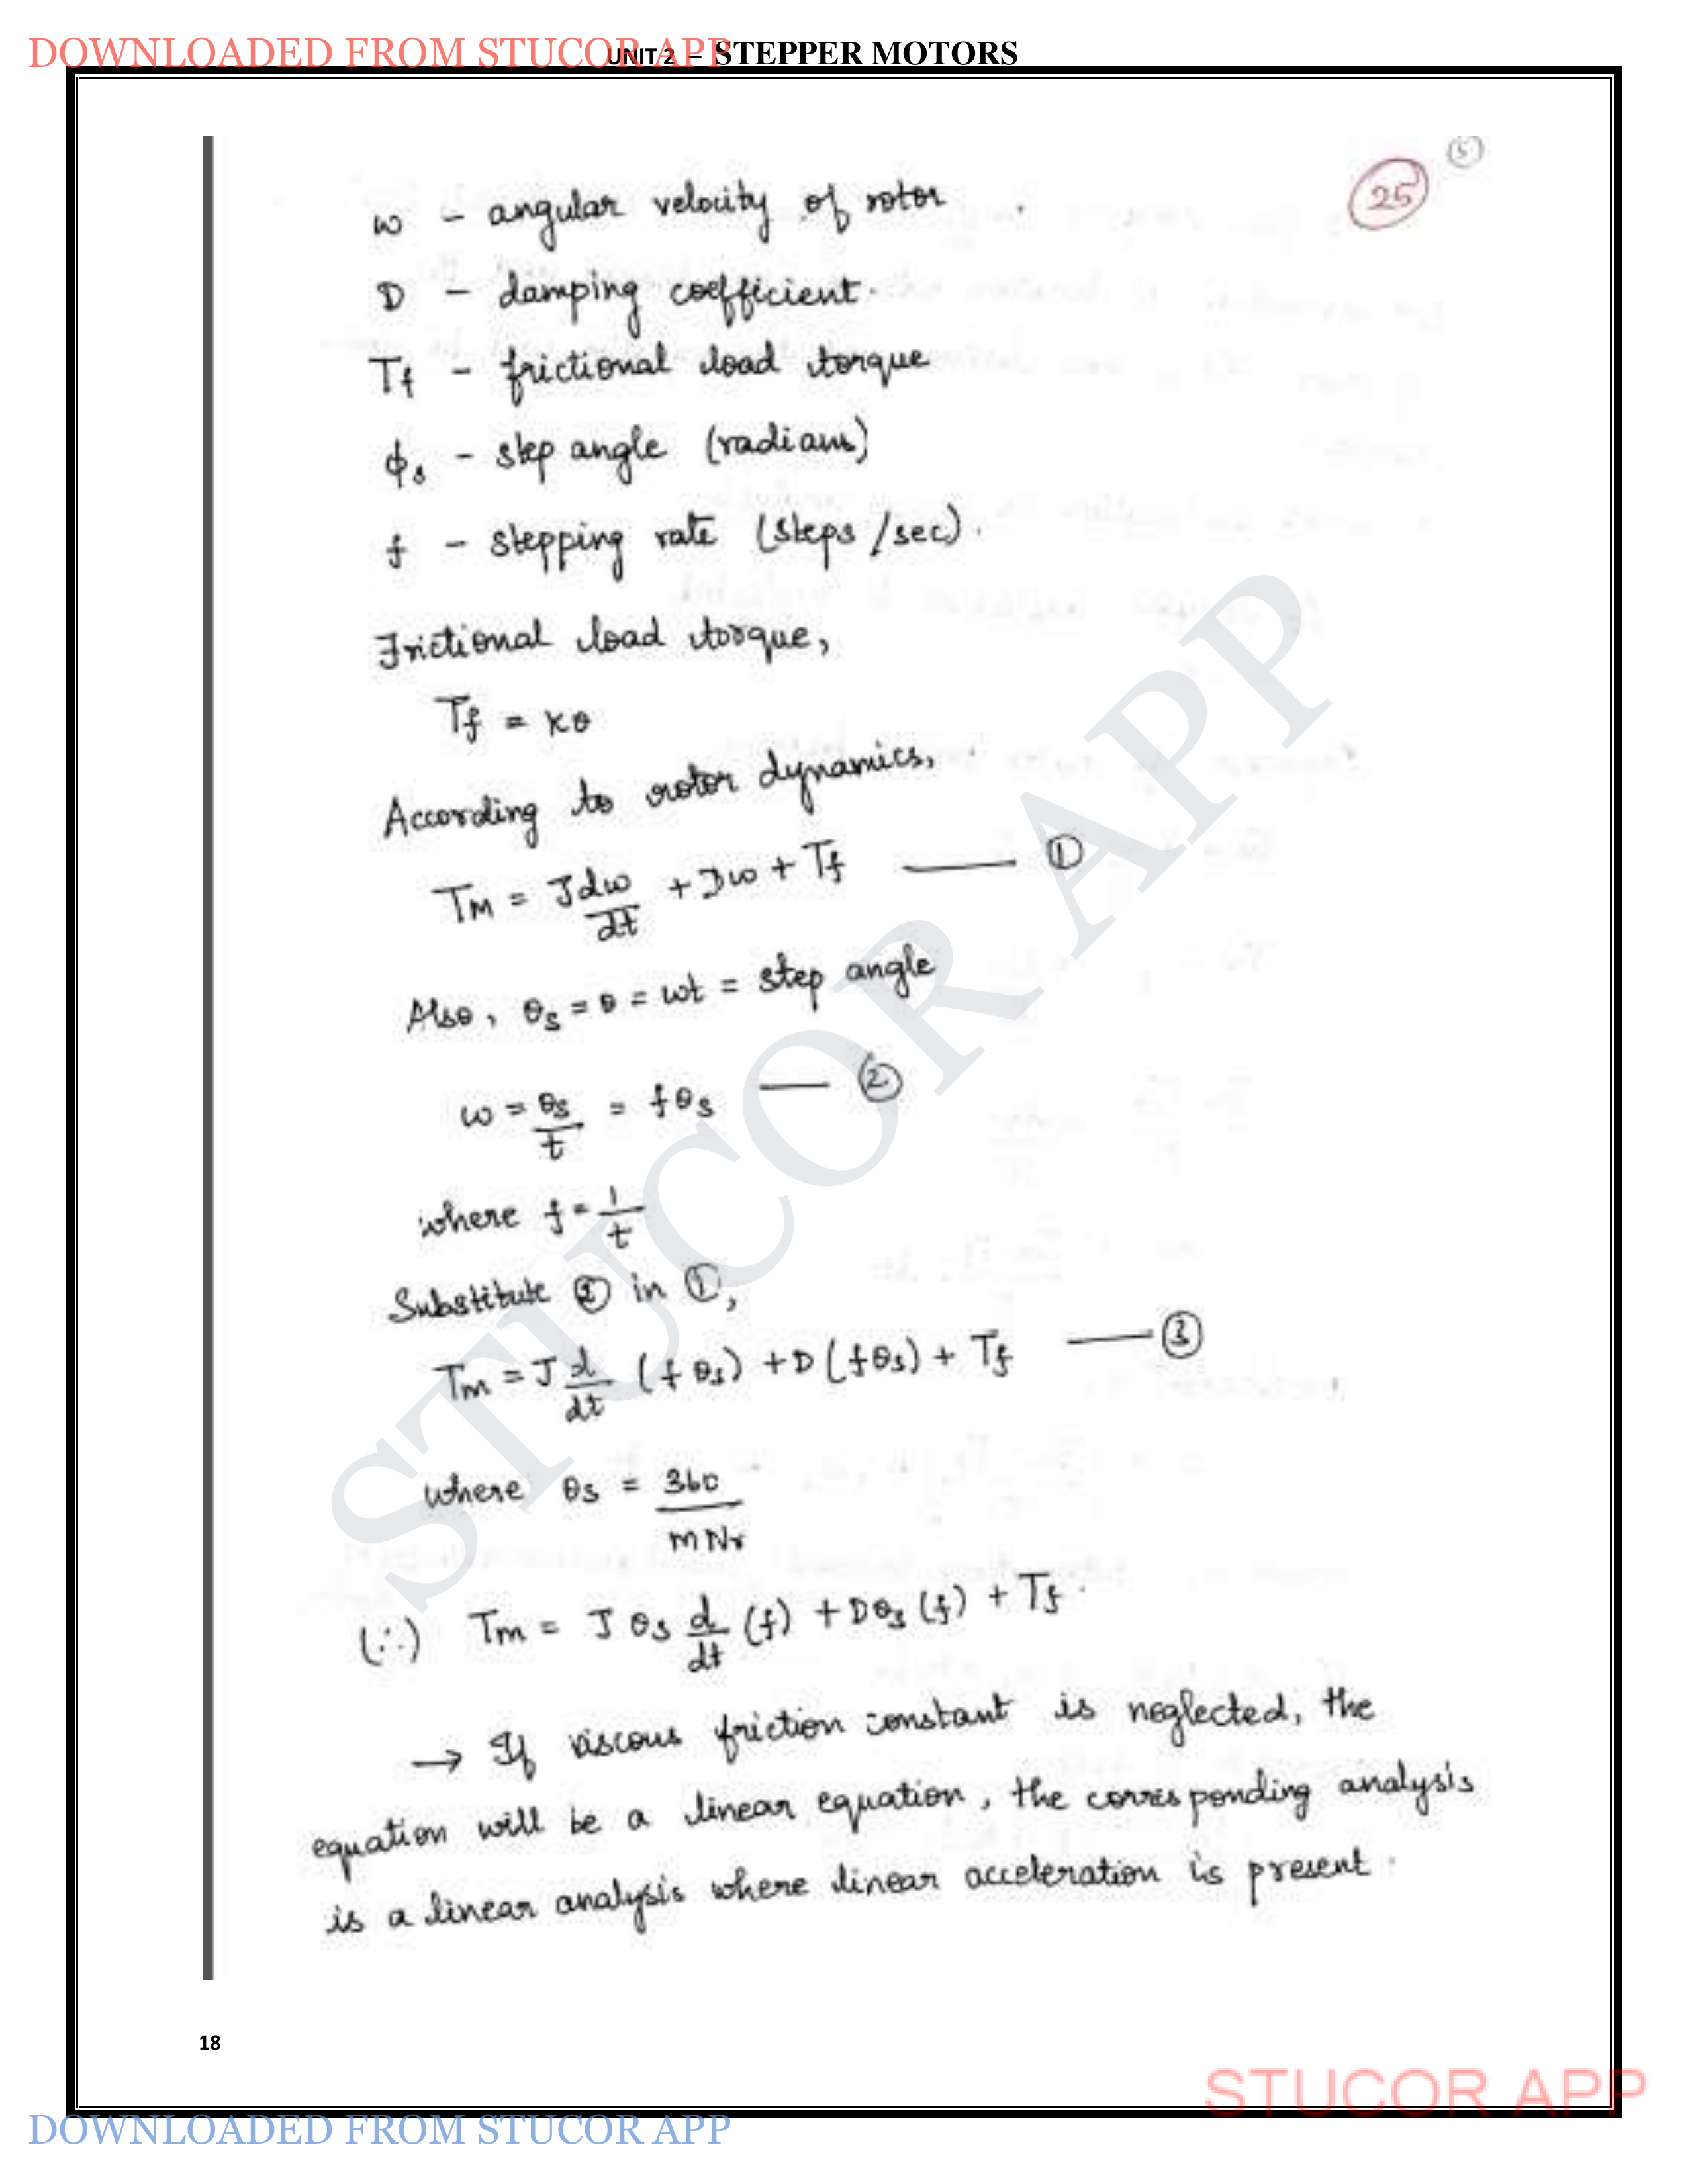 DOWNLOADED FROM STUCOR APP
UNIT 2 – STEPPER MOTORS
5
25
ω – angular velocity of rotor
D – damping coefficient.
Tf – frictional load torque
ϕs – step angle (radians)
f – stepping rate (steps/sec).
Frictional load torque,
Tf = Kθ
According to rotor dynamics,
TM = J dω/dt + Dω + Tf —— ①
Also, θs = θ = ωt = step angle
ω = θs/t = fθs —— ②
where f = 1/t
Substitute ② in ①,
Tm = J d/dt (fθs) + D(fθs) + Tf —— ③
where θs = 360/mNr
(∴) Tm = Jθs d/dt (f) + Dθs (f) + Tf.
→ If viscous friction constant is neglected, the
equation will be a linear equation, the corresponding analysis
is a linear analysis where linear acceleration is present.
STUCOR APP
18
STUCOR APP
DOWNLOADED FROM STUCOR APP